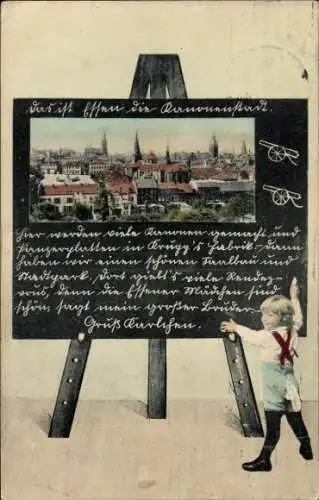 das ist Essen die Kanonenstadt.
hier werden viele Kanonen gemacht und
Panzerplatten in Krupp's Fabrik - dann
haben wir einen schönen Saalbau und
Stadtpark, dort giebt's viele Rendez-
vous, denn die Essener Mädchen sind
schön, sagt mein großer Bruder
Gruß Karlchen.